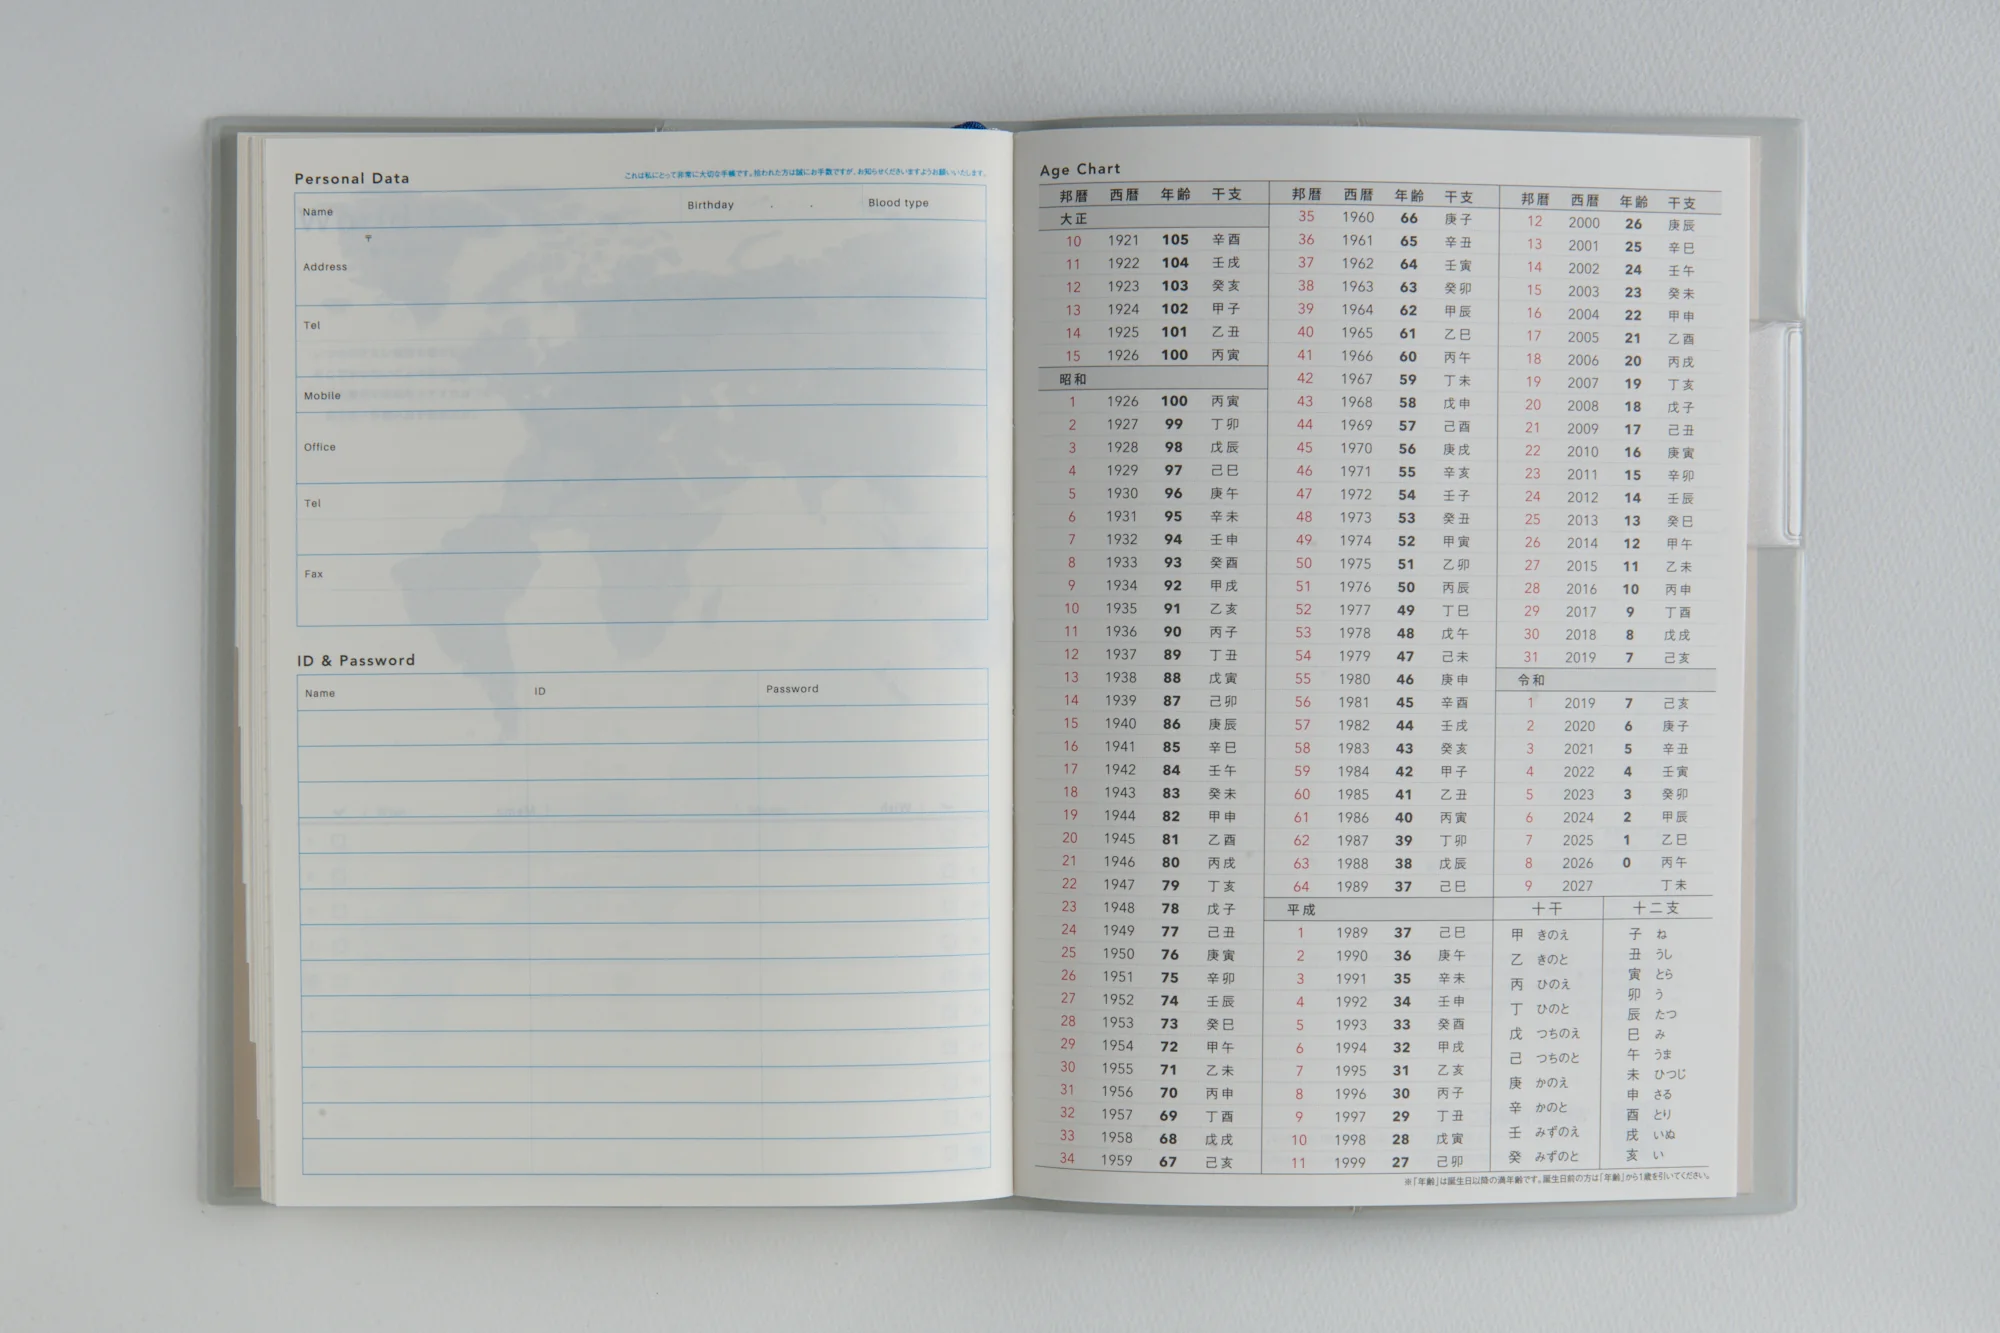 Personal Data
これは私にとって非常に大切な手帳です。拾われた方は誠にお手数ですが、お知らせくださいますようお願いいたします。
Name Birthday . . Blood type
〒
Address
Tel
Mobile
Office
Tel
Fax
ID & Password
Name ID Password
Age Chart
邦暦 西暦 年齢 干支
大正
10 1921 105 辛酉
11 1922 104 壬戌
12 1923 103 癸亥
13 1924 102 甲子
14 1925 101 乙丑
15 1926 100 丙寅
昭和
1 1926 100 丙寅
2 1927 99 丁卯
3 1928 98 戊辰
4 1929 97 己巳
5 1930 96 庚午
6 1931 95 辛未
7 1932 94 壬申
8 1933 93 癸酉
9 1934 92 甲戌
10 1935 91 乙亥
11 1936 90 丙子
12 1937 89 丁丑
13 1938 88 戊寅
14 1939 87 己卯
15 1940 86 庚辰
16 1941 85 辛巳
17 1942 84 壬午
18 1943 83 癸未
19 1944 82 甲申
20 1945 81 乙酉
21 1946 80 丙戌
22 1947 79 丁亥
23 1948 78 戊子
24 1949 77 己丑
25 1950 76 庚寅
26 1951 75 辛卯
27 1952 74 壬辰
28 1953 73 癸巳
29 1954 72 甲午
30 1955 71 乙未
31 1956 70 丙申
32 1957 69 丁酉
33 1958 68 戊戌
34 1959 67 己亥
邦暦 西暦 年齢 干支
35 1960 66 庚子
36 1961 65 辛丑
37 1962 64 壬寅
38 1963 63 癸卯
39 1964 62 甲辰
40 1965 61 乙巳
41 1966 60 丙午
42 1967 59 丁未
43 1968 58 戊申
44 1969 57 己酉
45 1970 56 庚戌
46 1971 55 辛亥
47 1972 54 壬子
48 1973 53 癸丑
49 1974 52 甲寅
50 1975 51 乙卯
51 1976 50 丙辰
52 1977 49 丁巳
53 1978 48 戊午
54 1979 47 己未
55 1980 46 庚申
56 1981 45 辛酉
57 1982 44 壬戌
58 1983 43 癸亥
59 1984 42 甲子
60 1985 41 乙丑
61 1986 40 丙寅
62 1987 39 丁卯
63 1988 38 戊辰
64 1989 37 己巳
平成
1 1989 37 己巳
2 1990 36 庚午
3 1991 35 辛未
4 1992 34 壬申
5 1993 33 癸酉
6 1994 32 甲戌
7 1995 31 乙亥
8 1996 30 丙子
9 1997 29 丁丑
10 1998 28 戊寅
11 1999 27 己卯
邦暦 西暦 年齢 干支
12 2000 26 庚辰
13 2001 25 辛巳
14 2002 24 壬午
15 2003 23 癸未
16 2004 22 甲申
17 2005 21 乙酉
18 2006 20 丙戌
19 2007 19 丁亥
20 2008 18 戊子
21 2009 17 己丑
22 2010 16 庚寅
23 2011 15 辛卯
24 2012 14 壬辰
25 2013 13 癸巳
26 2014 12 甲午
27 2015 11 乙未
28 2016 10 丙申
29 2017 9 丁酉
30 2018 8 戊戌
31 2019 7 己亥
令和
1 2019 7 己亥
2 2020 6 庚子
3 2021 5 辛丑
4 2022 4 壬寅
5 2023 3 癸卯
6 2024 2 甲辰
7 2025 1 乙巳
8 2026 0 丙午
9 2027 丁未
十干
甲 きのえ
乙 きのと
丙 ひのえ
丁 ひのと
戊 つちのえ
己 つちのと
庚 かのえ
辛 かのと
壬 みずのえ
癸 みずのと
十二支
子 ね
丑 うし
寅 とら
卯 う
辰 たつ
巳 み
午 うま
未 ひつじ
申 さる
酉 とり
戌 いぬ
亥 い
※「年齢」は誕生日以降の満年齢です。誕生日前の方は「年齢」から1歳を引いてください。